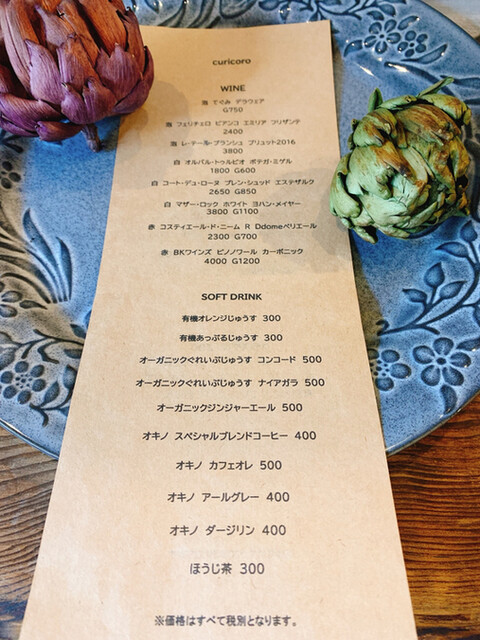 curicoro
WINE
泡 てぐみ デラウェア
G750
泡 フェリチェロ ビアンコ エミリア フリザンテ
2400
泡 レ・テール・ブランシュ ブリュット2016
3800
白 オルバル・トゥルビオ ボデガ・ミゲル
1800 G600
白 コート・デュ・ローヌ ブレン・シュッド エステザルク
2650 G850
白 マザー・ロック ホワイト ヨハン・メイヤー
3800 G1100
赤 コスティエール・ド・ニーム R Ddomeペリエール
2300 G700
赤 BKワインズ ピノノワール カーボニック
4000 G1200
SOFT DRINK
有機オレンジじゅうす 300
有機あっぷるじゅうす 300
オーガニックぐれいぷじゅうす コンコード 500
オーガニックぐれいぷじゅうす ナイアガラ 500
オーガニックジンジャーエール 500
オキノ スペシャルブレンドコーヒー 400
オキノ カフェオレ 500
オキノ アールグレー 400
オキノ ダージリン 400
ほうじ茶 300
※価格はすべて税別となります。